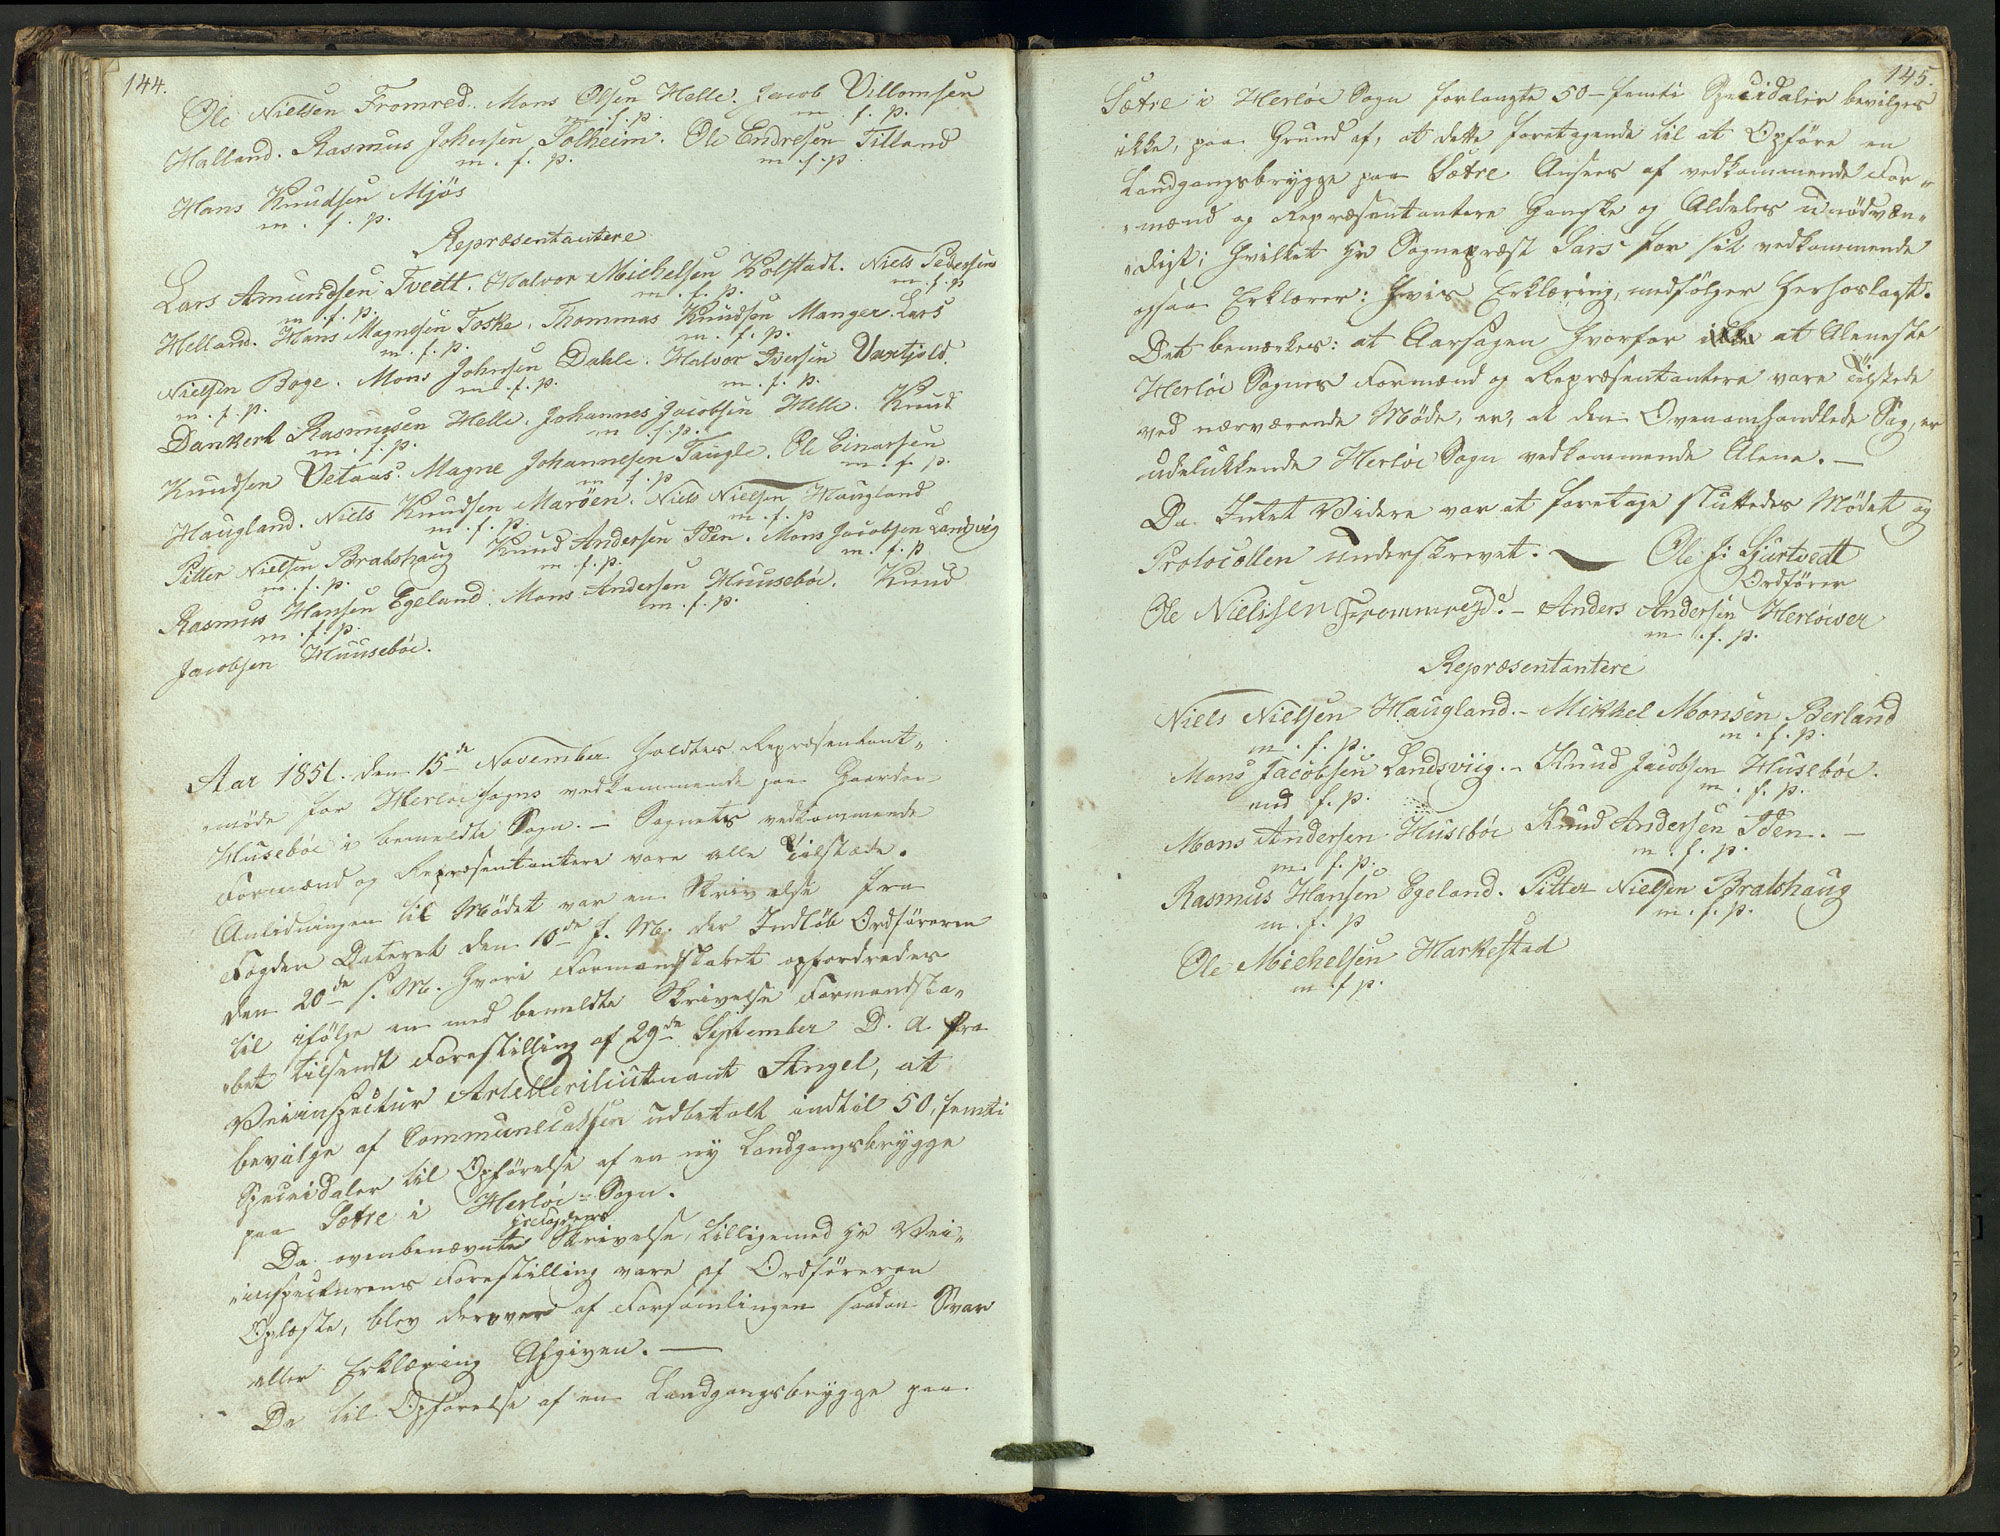 144.
Ole Nielsen Fromred. Mons Olsen Helle. Jacob Villomsen
m. f. p. m. f. p.
Halland. Rasmus Johnsen Tolheim. Ole Endresen Tilland
m. f. p. m. f. p
Hans Knudsen Mjös
m. f. p.
Repræsentantere
Lars Amundsen Tveitt. Halvor Michelsen Kolstadt. Niels Pedersen
m. f. p. m. f. p. m. f. p
Helland. Hans Magnesen Toske. Thommas Knudsen Manger. Lars
m. f. p. m. f. p.
Nielsen Boge. Mons Johnsen Dahle. Halvor Iversen
m. f. p. m. f. p. m. f. p.
Dankert Rasmusen Helle. Johannes Jacobsen Helle. Knud
m. f. p. m. f. p.
Knudsen Vetaas. Magne Johannesen Taugle. Ole Einarsen
m. f. p m. f. p.
Haugland. Niels Knudsen Maröen. Niels Nielsen Haugland
m. f. p. m. f. p
Pitter Nielsen Bratshaug Knud Andersen Iden. Mons Jacobsen Landsvig
m. f. p. m. f. p. m. f. p
Rasmus Hansen Egeland. Mons Andersen Huusebøe. Knud
m. f. p. m. f. p.
Jacobsen Huusebøe.
Aar 1851. den 15de November holdtes Repræsentant-
møde for Herløe sogns vedkommende paa Gaarden
Husebøe i bemeldte Sogn. — Sognets vedkommende
Formænd og Repræsentantere vare alle Tilstæde.
Anledningen til Mødet var en Skrivelse fra
Fogden Dateret den 10de f. M. der Indløb Ordføreren
den 20de s. M. hvori Formandskabet opfordredes
til ifølge en med bemeldte Skrivelse Formandska-
bet tilsendt Forestilling af 29de September D. A. fra
Veiinspectur Artelleriliutnant Angel, at
bevilge af Communecassen udbetalt indtil 50, femti
Speciedaler til Opførelse af en ny Landgangsbrygge
paa Sætre i Herløe-Sogn.
Da ovenbenævnte Skrivelse, tilligemed Hr Vei-
inspecturens Forestilling vare af Ordføreren
Oplæste, blev derover af Forsamlingen saadan Svar
eller Erklæring Afgiven. —
Da til Opførelse af en Landgangsbrygge paa
145.
Sætre i Herløe Sogn forlangte 50 - femti Speciedaler bevilges
ikke, paa Grund af, at dette foretagende til at Opføre en
Landgangsbrygge paa Sætre Ansees af vedkommende For-
mænd og Repræsentantere Ganske og Aldeles unødven-
digt; hvilket Hr Sognepræst Sars for sit vedkommende
ogsaa Erklærer: hvis Erklæring, medfølger herhoslagt.
Det bemærkes: at Aarsagen hvorfor at Aleneste
Herløe Sognes Formænd og Repræsentantere vare Tilstede
ved nærværende Møde, er, at den Ovenomhandlede Sag, er
udelukkende Herløe Sogn vedkommende Alene. —
Da Intet Videre var at foretage sluttedes Mødet og
Protocollen underskrevet. — Ole J: Gjertvedt
Ordfører
Ole Nielsen Frommreyd. - Anders Andersen Herløevær
m. f. p.
Repræsentantere
Niels Nielsen Haugland. - Mikkel Monsen Berland
m. f. p. m. f. p.
Mons Jacobsen Landsviig. - Knud Jacobsen Husebøe.
md f. p. m. f. p.
Mons Andersen Husebøe Knud Andersen Iden. —
m. f. p. m. f. p.
Rasmus Hansen Egeland. Pitter Nielsen Bratshaug
m. f. p m. f. p.
Ole Michelsen Harkestad
m f p.